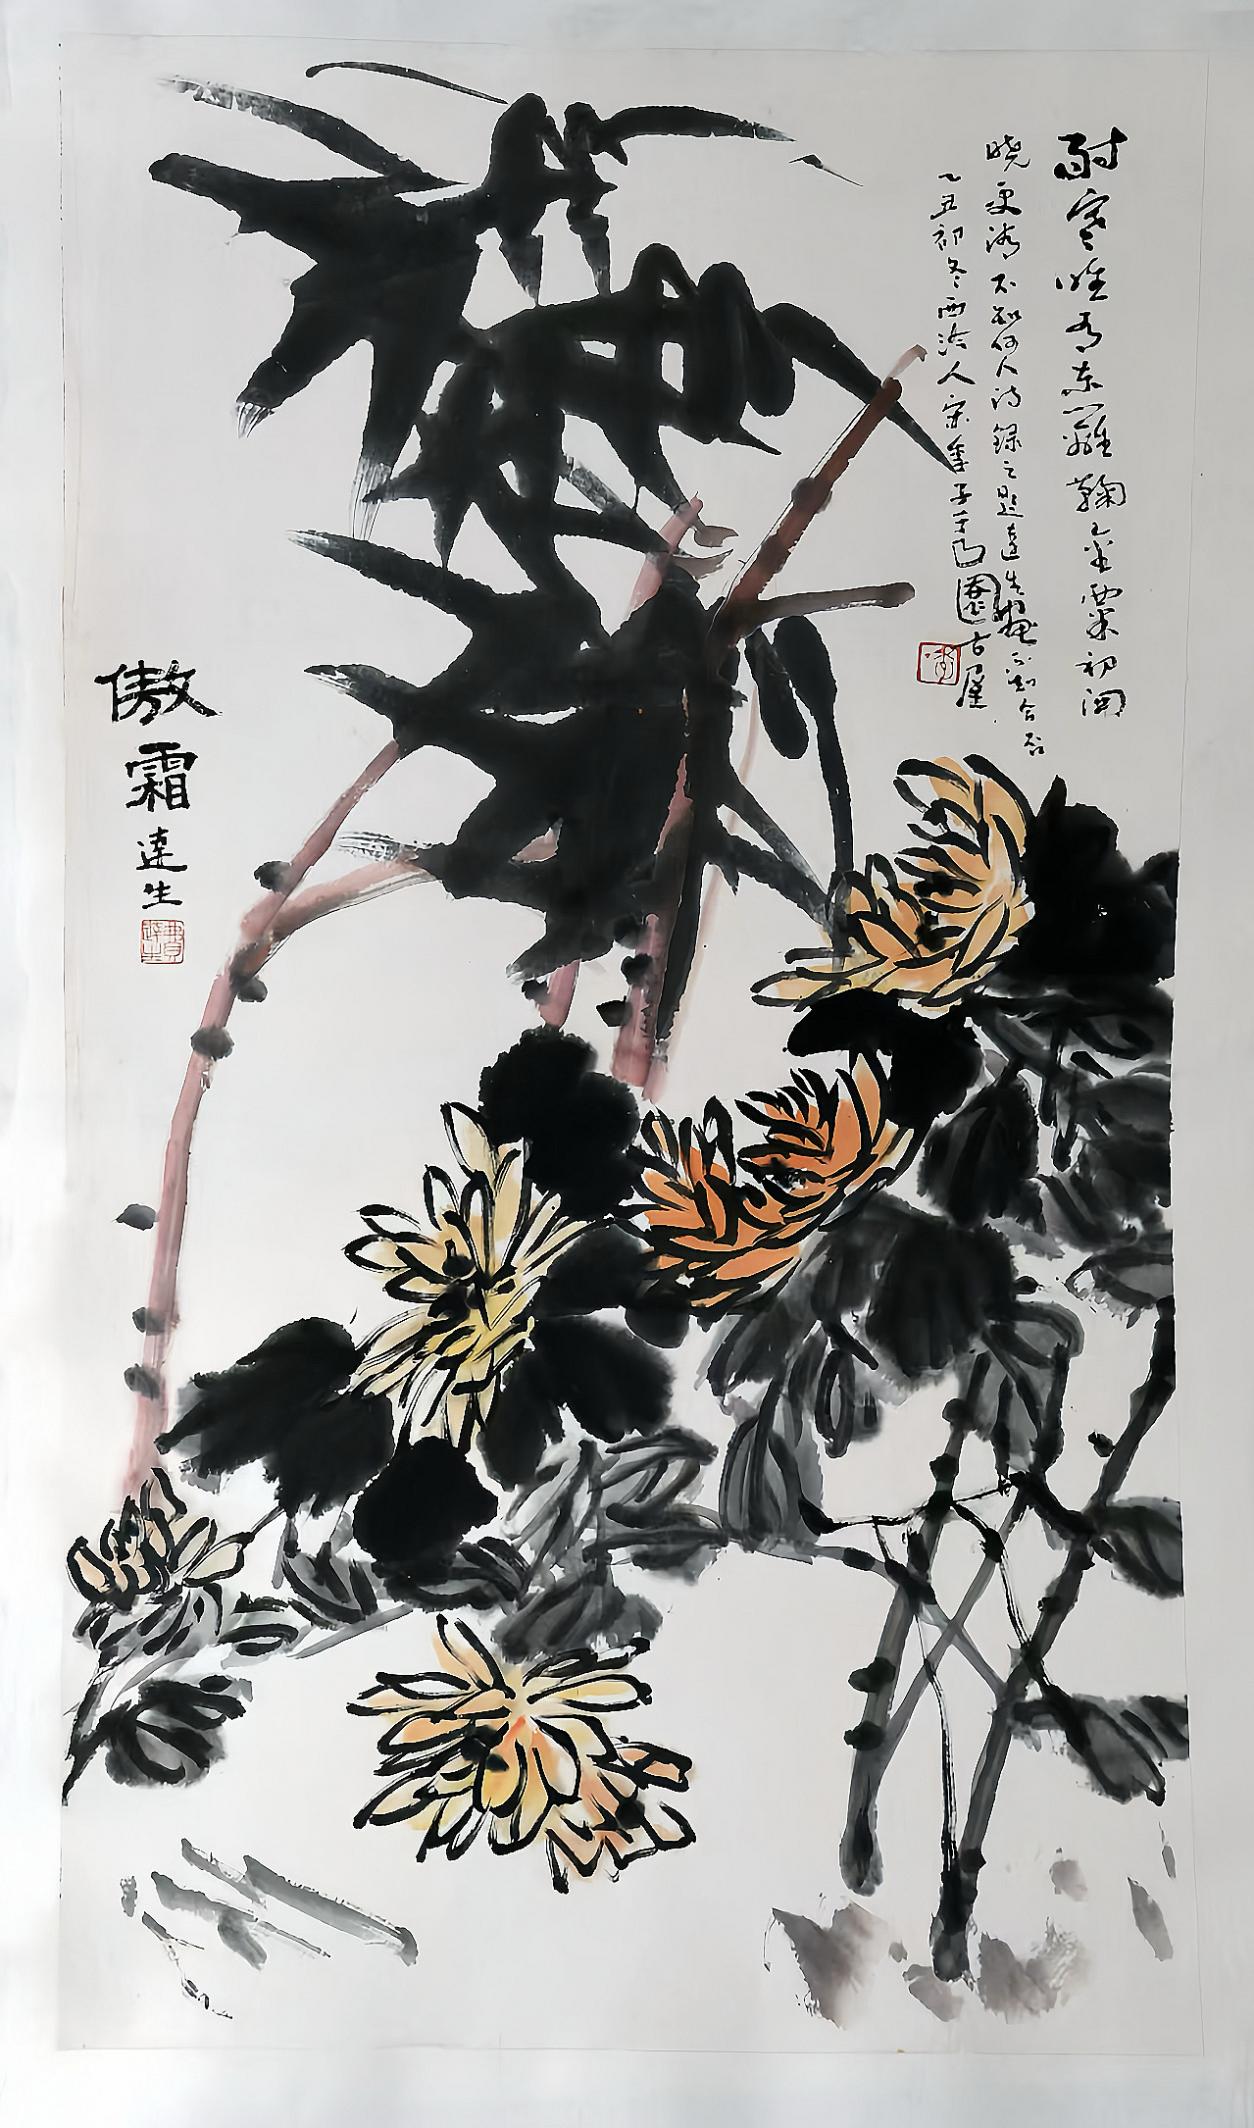 耐寒唯有东篱鞠金粟初开
晓更清不知何人诗录之题达生画不知合否
乙丑初冬西泠人宋季子于古屋
傲霜
达生